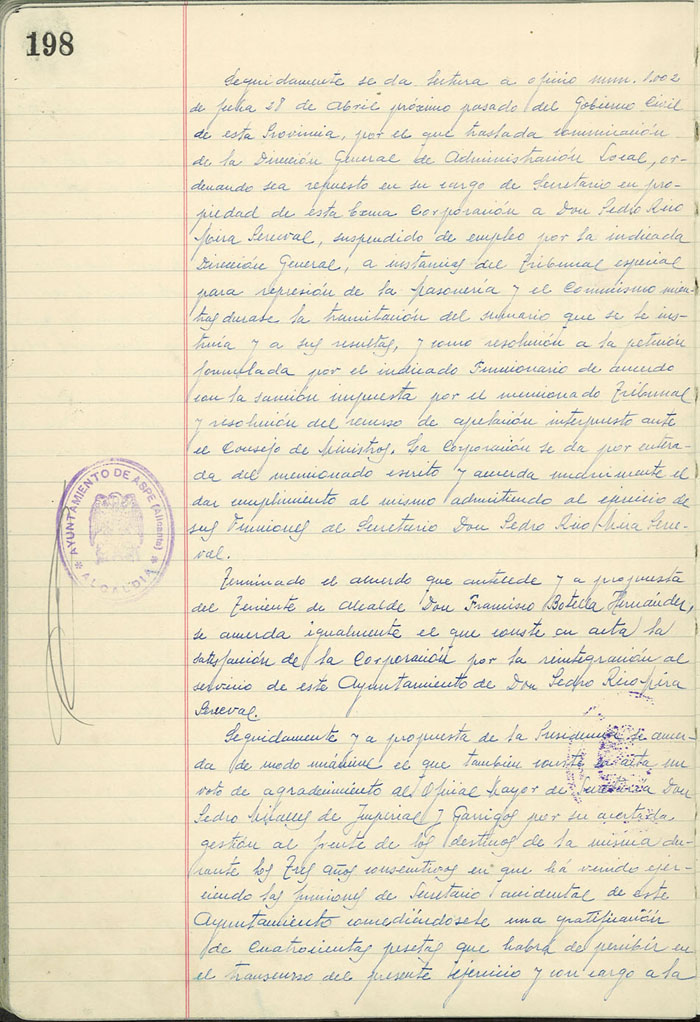 198
Seguidamente se da lectura a oficio num. 1.002
de fecha 28 de Abril próximo pasado del Gobierno Civil
de esta Provincia, por el que traslada comunicación
de la Dirección General de Administración Local, or-
denando sea repuesto en su cargo de Secretario en pro-
piedad de esta Corporación a Don Pedro Rico
Mira Perceval, suspendido de empleo por la indicada
Dirección General, a instancias del Tribunal especial
para represión de la Masonería y el Comunismo mien-
tras durase la tramitación del sumario que se le ins-
truia y a sus resultas, y como resolución a la petición
formulada por el indicado Funcionario de acuerdo
con la sanción impuesta por el mencionado Tribunal
y resolución del recurso de apelación interpuesto ante
el Consejo de Ministros. La Corporación se da por entera-
da del mencionado escrito y acuerda el
dar cumplimiento al mismo admitiendo al ejercicio de
sus Funciones al Secretario Don Pedro Rico Mira Perce-
val.
Terminado el acuerdo que antecede y a propuesta
del Teniente de Alcalde Don Francisco Botella Hernández,
se acuerda igualmente el que conste en acta la
satisfacción de la Corporación por la reintegración al
servicio de este Ayuntamiento de Don Pedro Rico Mira
Perceval.
Seguidamente y a propuesta de la Presidencia se acuer-
da de modo unánime el que tambien conste en acta un
voto de agradecimiento al Oficial Mayor de Don
Pedro Miralles de Imperial y Garrigos por su acertada
gestión al frente de los destinos de la misma du-
rante los tres años consecutivos en que há venido ejer-
ciendo las funciones de Secretario accidental de este
Ayuntamiento concediéndosele una gratificación
de Cuatrocientas pesetas que habrá de percibir en
el transcurso del presente ejercicio y con cargo a la
AYUNTAMIENTO DE ASPE (Alicante)
ALCALDIA